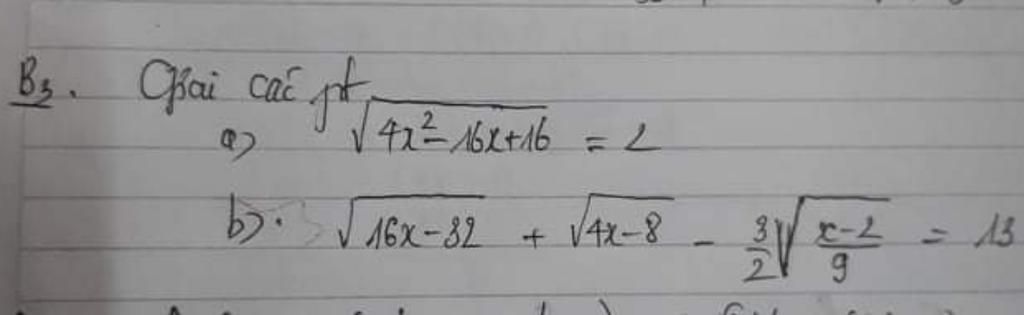 B3. Giải các pt
a) √(4x² - 16x + 16) = 2
b) √(16x - 32) + √(4x - 8) - 3/2 √((x - 2)/9) = 13